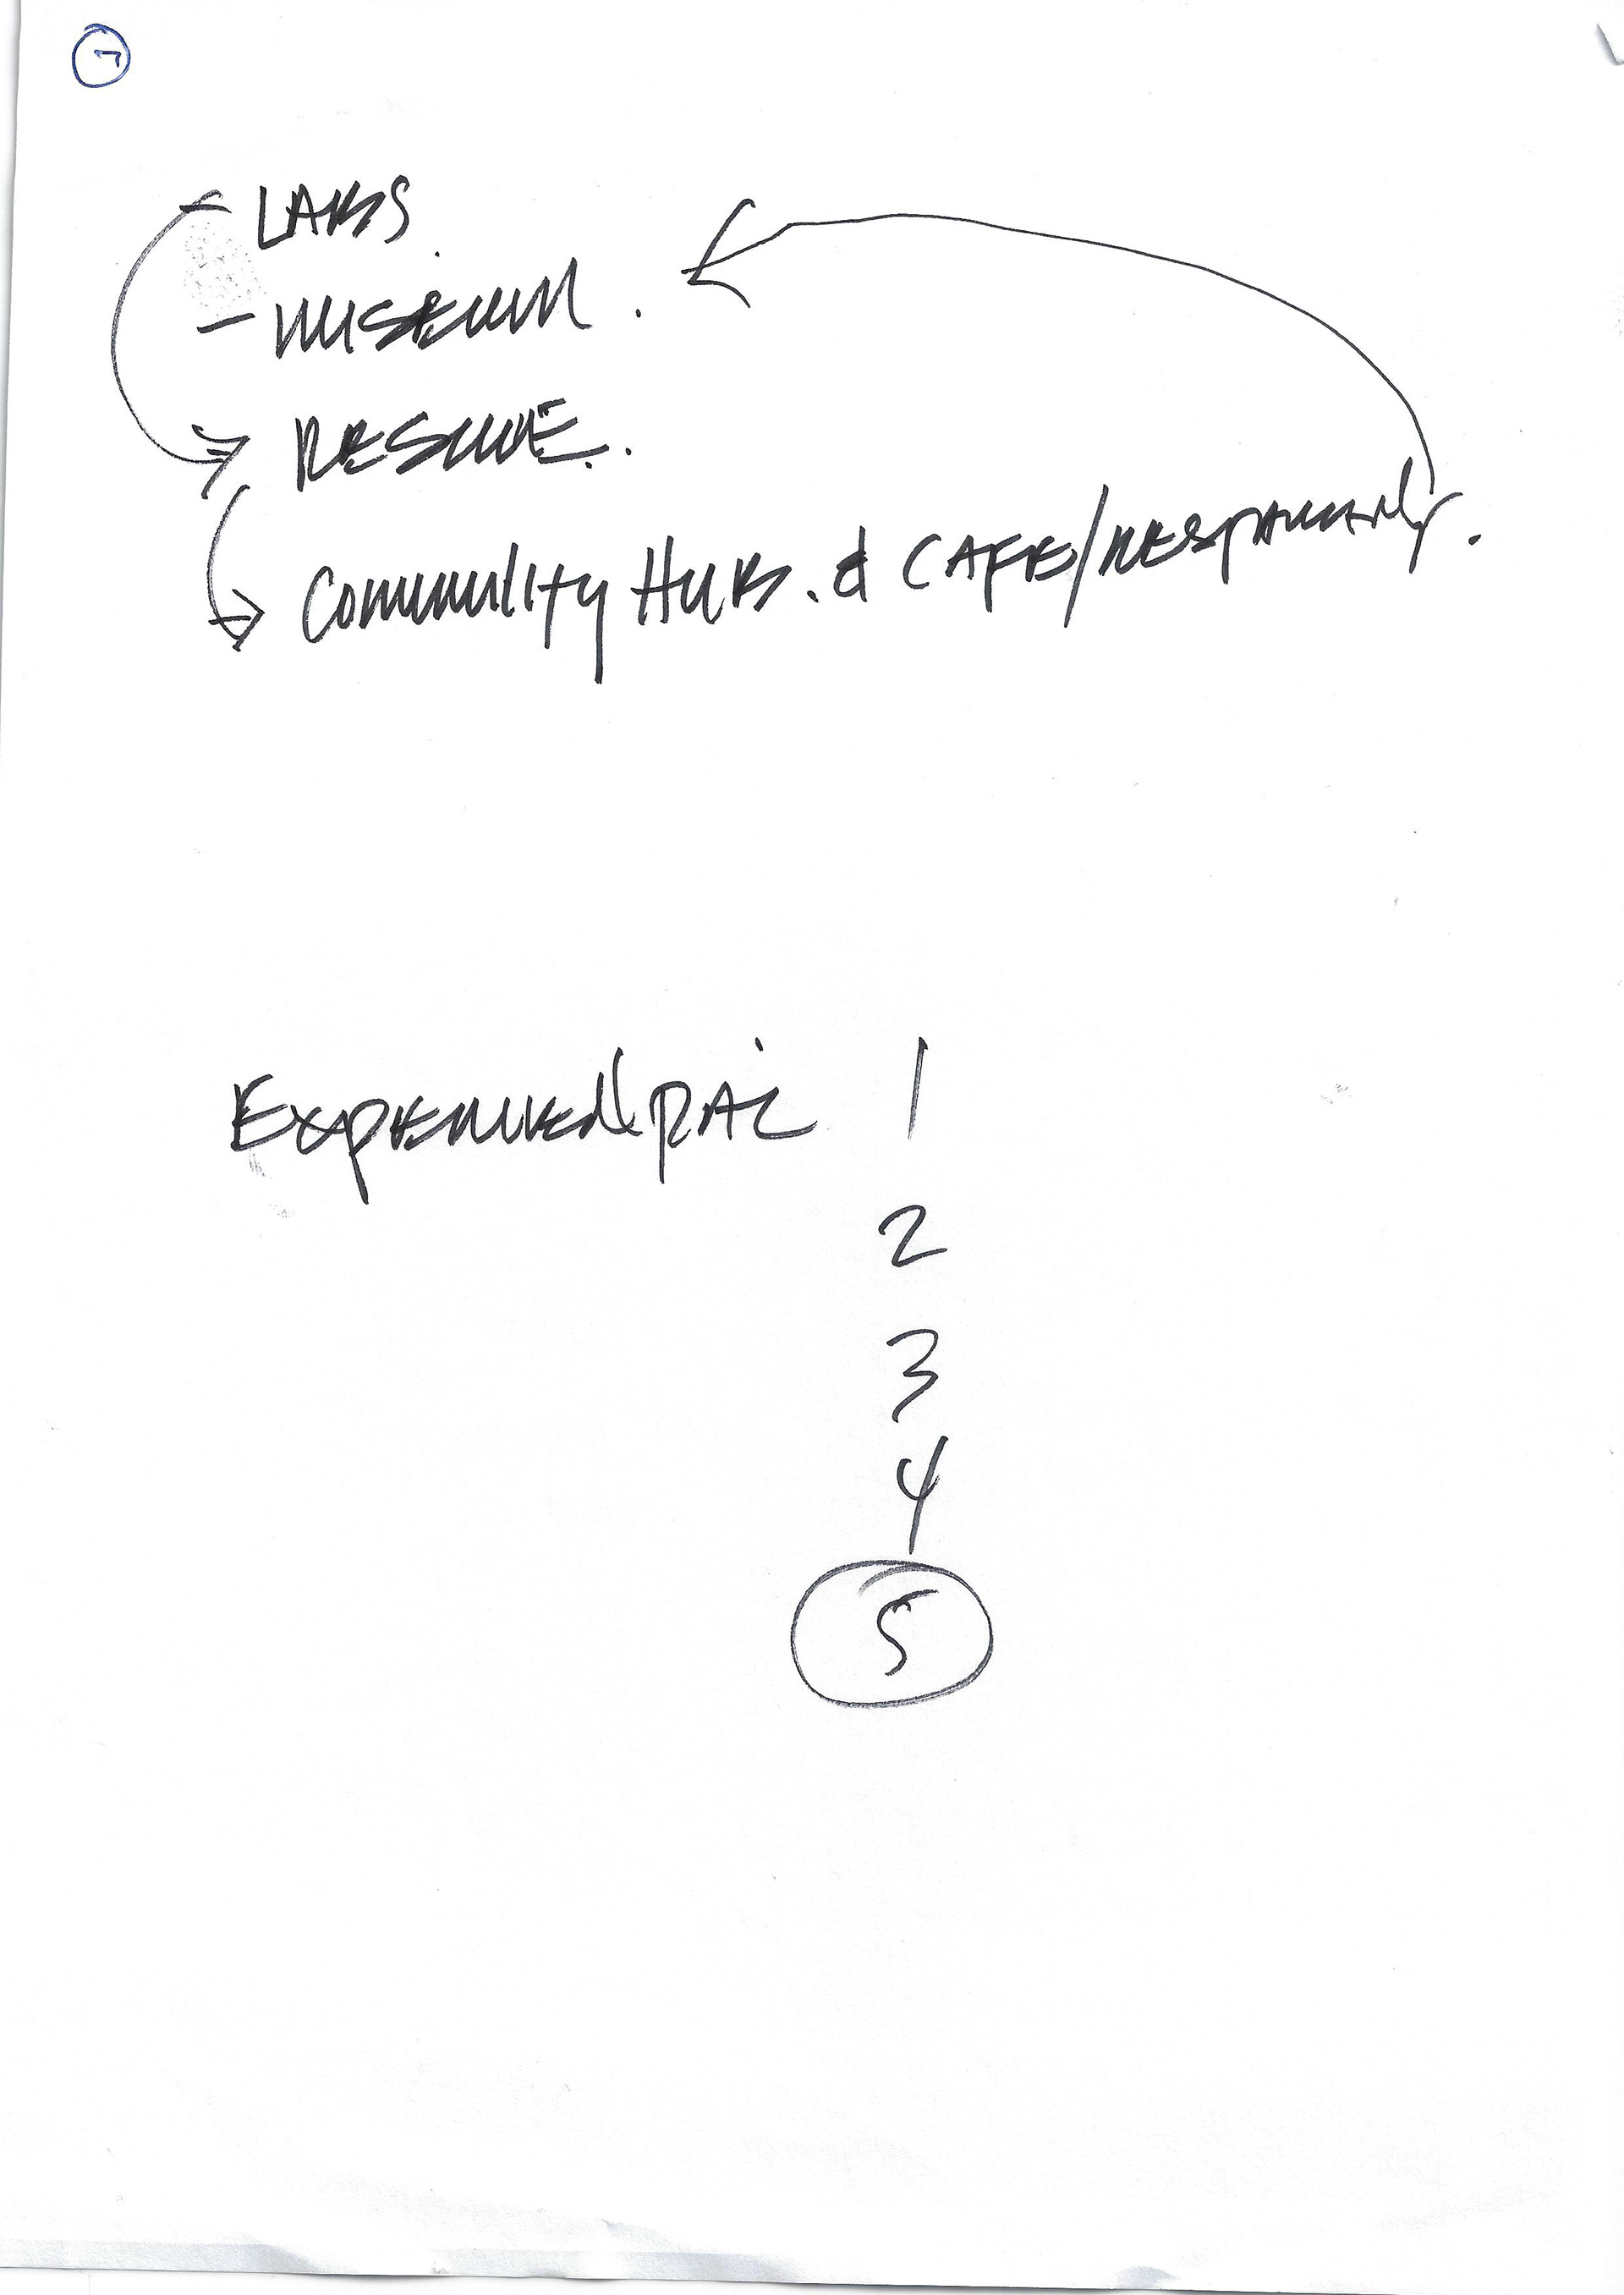 7
- LABS
- MUSEUM.
RESCUE.
COMMUNITY HUB. & CAFE/RESTAURANT.
EXPERIENTIAL 1
2
3
4
5